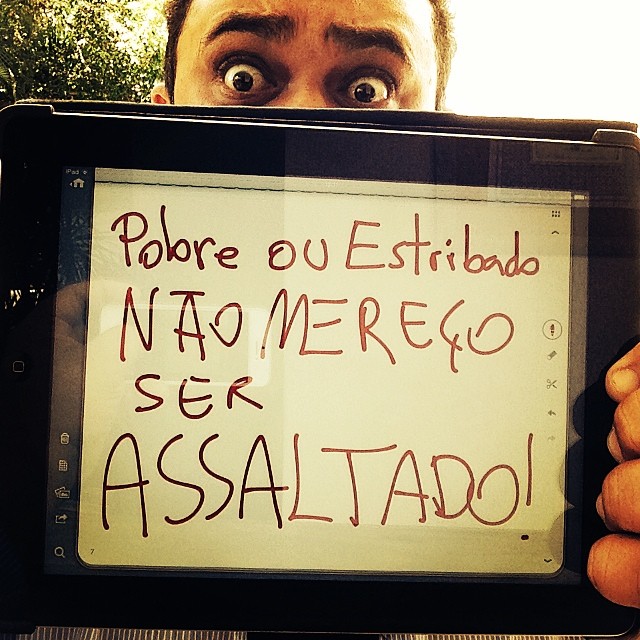 iPad
Pobre ou Estribado
NÃO MEREÇO
SER
ASSALTADO!
7